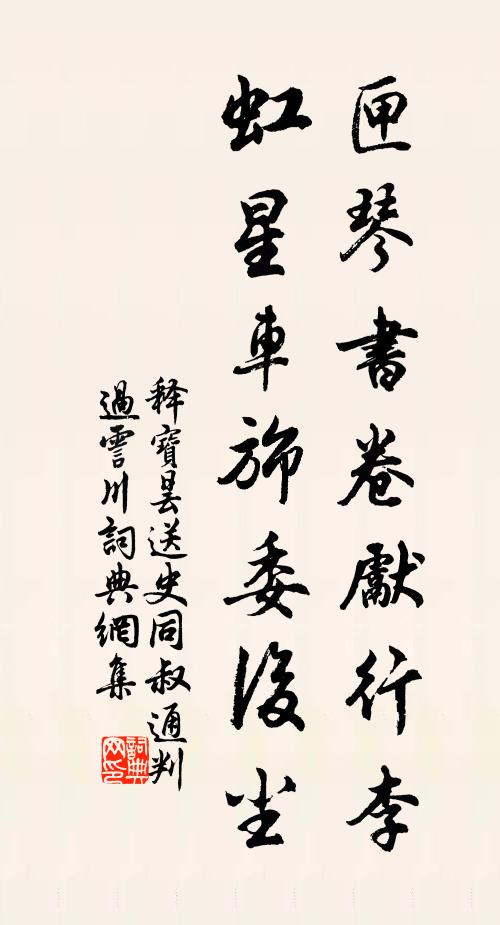 匣琴書卷獻行李
虹星車旆委後尘
释寶曇送史同叔通判
過霅川詞典網集
詞典网印